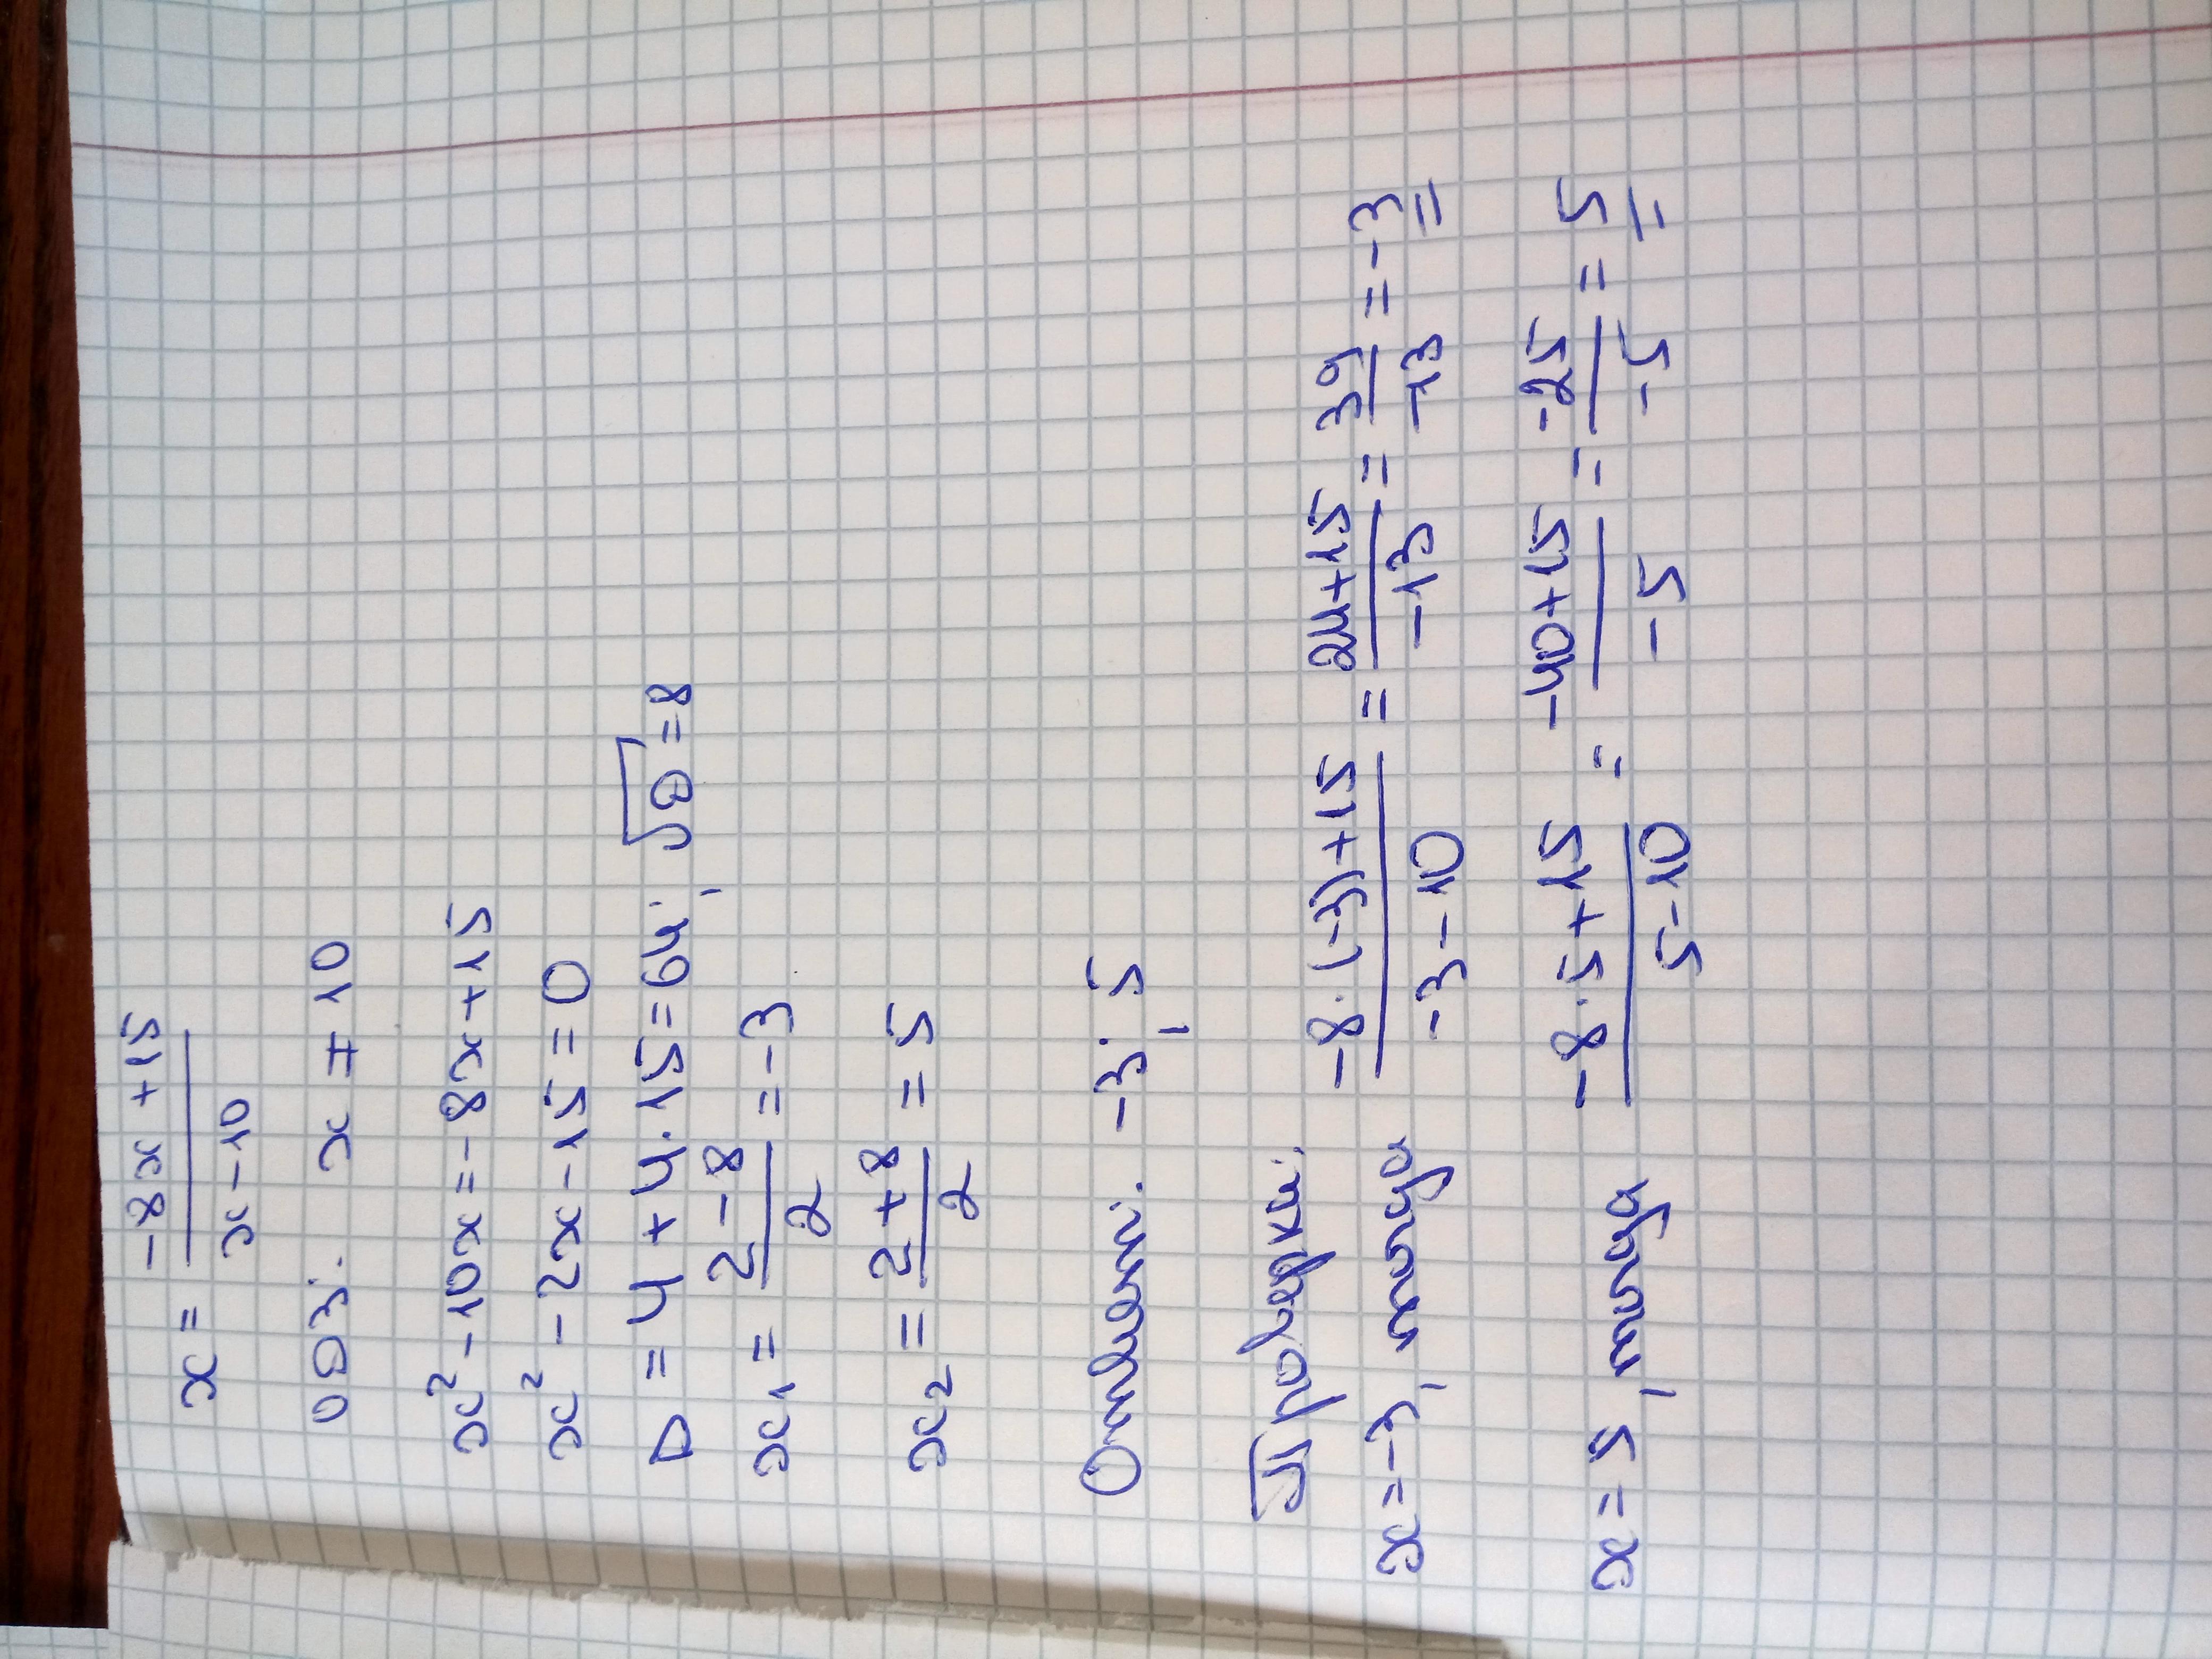 x = (-8x + 15)/(x - 10)
ОДЗ: x ≠ 10
x² - 10x = -8x + 15
x² - 2x - 15 = 0
D = 4 + 4 · 15 = 64; √D = 8
x₁ = (2 - 8)/2 = -3
x₂ = (2 + 8)/2 = 5
Ответ: -3; 5
Проверка:
x = -3, тогда (-8 · (-3) + 15)/(-3 - 10) = (24 + 15)/(-13) = 39/(-13) = -3
x = 5, тогда (-8 · 5 + 15)/(5 - 10) = (-40 + 15)/(-5) = (-25)/(-5) = 5